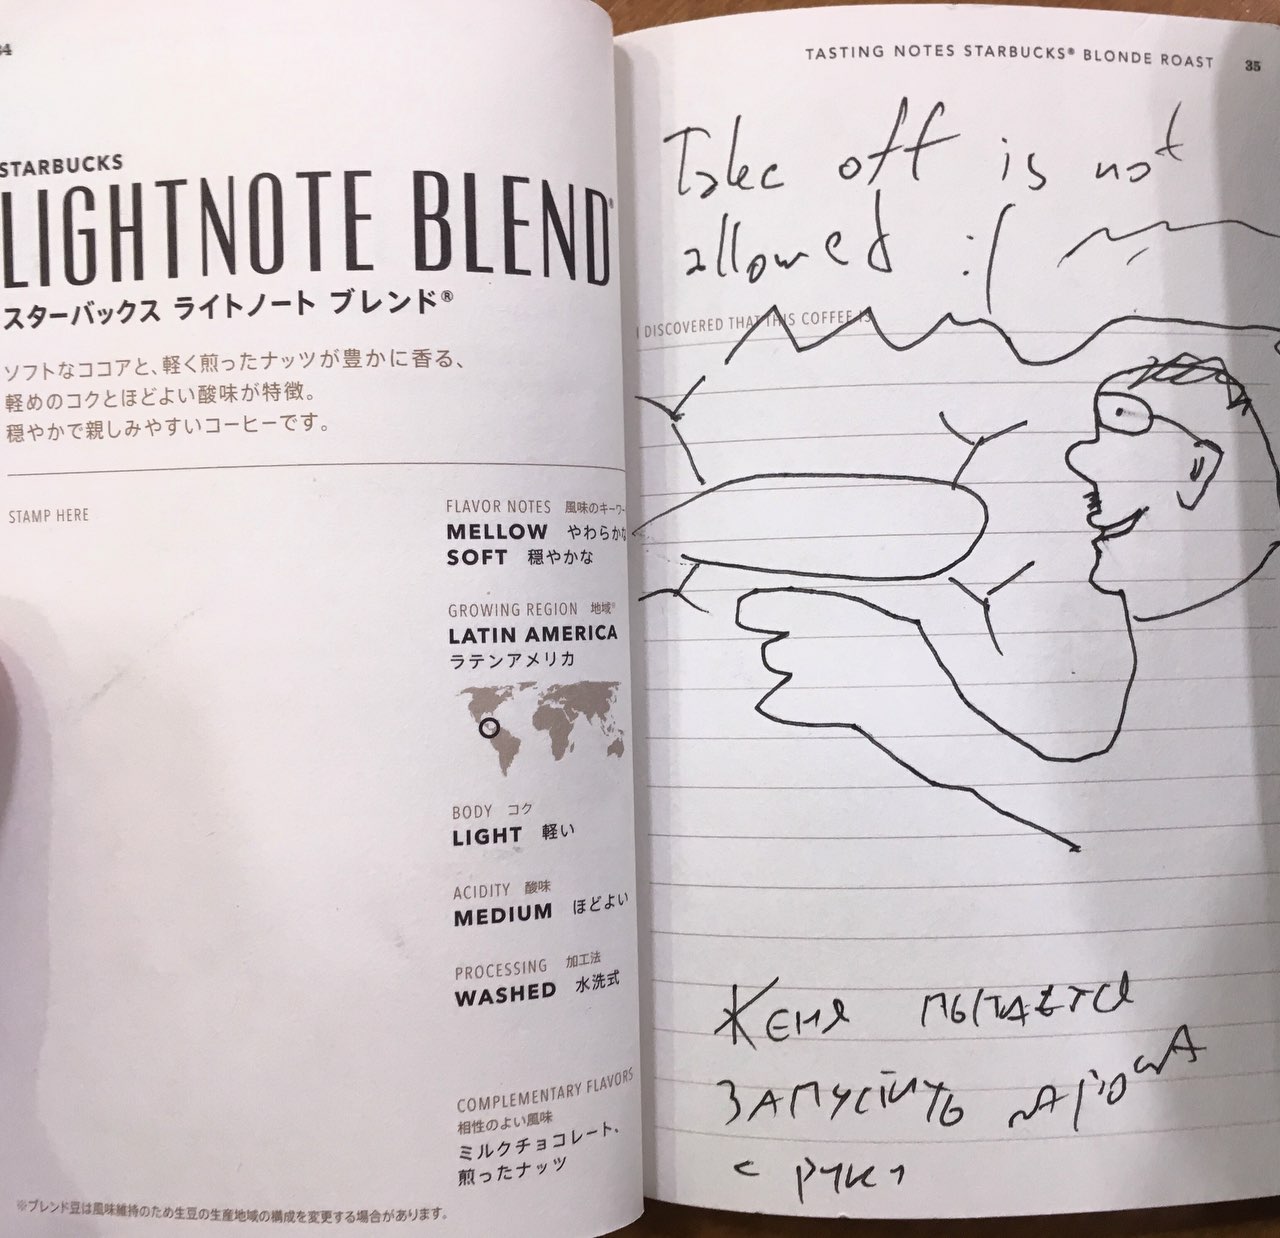 34
STARBUCKS
LIGHTNOTE BLEND®
スターバックス ライトノート ブレンド®
ソフトなココアと、軽く煎ったナッツが豊かに香る、
軽めのコクとほどよい酸味が特徴。
穏やかで親しみやすいコーヒーです。
STAMP HERE
FLAVOR NOTES 風味のキーワー
MELLOW やわらかな
SOFT 穏やかな
GROWING REGION 地域※
LATIN AMERICA
ラテンアメリカ
BODY コク
LIGHT 軽い
ACIDITY 酸味
MEDIUM ほどよい
PROCESSING 加工法
WASHED 水洗式
COMPLEMENTARY FLAVORS
相性のよい風味
ミルクチョコレート、
煎ったナッツ
※ブレンド豆は風味維持のため生豆の生産地域の構成を変更する場合があります。
TASTING NOTES STARBUCKS® BLONDE ROAST 35
Take off is not
allowed :(
I DISCOVERED THAT THIS COFFEE IS
Женя пытается
запустить
с руки